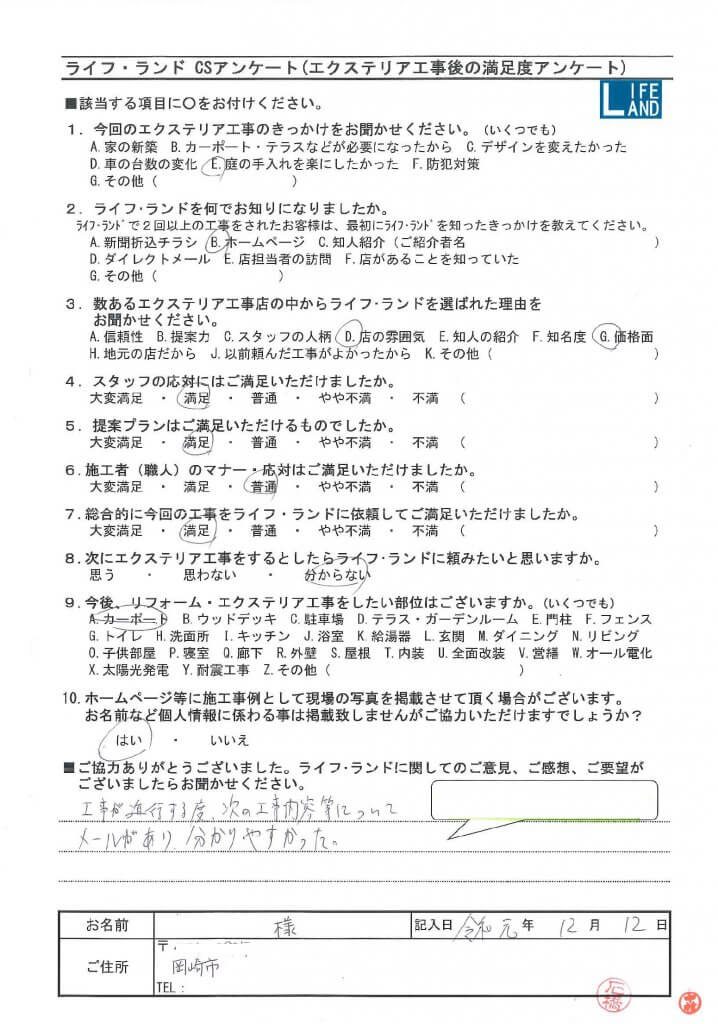 ライフ・ランド CSアンケート(エクステリア工事後の満足度アンケート)
LIFE LAND
■該当する項目に〇をお付けください。
1. 今回のエクステリア工事のきっかけをお聞かせください。(いくつでも)
A.家の新築 B.カーポート・テラスなどが必要になったから C.デザインを変えたかった
D.車の台数の変化 E.庭の手入れを楽にしたかった F.防犯対策
G.その他( )
2. ライフ・ランドを何でお知りになりましたか。
ライフ・ランドで2回以上の工事をされたお客様は、最初にライフ・ランドを知ったきっかけを教えてください。
A.新聞折込チラシ B.ホームページ C.知人紹介(ご紹介者名 )
D.ダイレクトメール E.店担当者の訪問 F.店があることを知っていた
G.その他( )
3. 数あるエクステリア工事店の中からライフ・ランドを選ばれた理由を
お聞かせください。
A.信頼性 B.提案力 C.スタッフの人柄 D.店の雰囲気 E.知人の紹介 F.知名度 G.価格面
H.地元の店だから J.以前頼んだ工事がよかったから K.その他( )
4. スタッフの応対にはご満足いただけましたか。
大変満足 ・ 満足 ・ 普通 ・ やや不満 ・ 不満 ( )
5. 提案プランはご満足いただけるものでしたか。
大変満足 ・ 満足 ・ 普通 ・ やや不満 ・ 不満 ( )
6. 施工者(職人)のマナー・応対はご満足いただけましたか。
大変満足 ・ 満足 ・ 普通 ・ やや不満 ・ 不満 ( )
7. 総合的に今回の工事をライフ・ランドに依頼してご満足いただけましたか。
大変満足 ・ 満足 ・ 普通 ・ やや不満 ・ 不満 ( )
8. 次にエクステリア工事をするとしたらライフ・ランドに頼みたいと思いますか。
思う ・ 思わない ・ 分からない
9. 今後、リフォーム・エクステリア工事をしたい部位はございますか。(いくつでも)
A.カーポート B.ウッドデッキ C.駐車場 D.テラス・ガーデンルーム E.門柱 F.フェンス
G.トイレ H.洗面所 I.キッチン J.浴室 K.給湯器 L.玄関 M.ダイニング N.リビング
O.子供部屋 P.寝室 Q.廊下 R.外壁 S.屋根 T.内装 U.全面改装 V.営繕 W.オール電化
X.太陽光発電 Y.耐震工事 Z.その他( )
10. ホームページ等に施工事例として現場の写真を掲載させて頂く場合がございます。
お名前など個人情報に係わる事は掲載致しませんがご協力いただけますでしょうか?
はい ・ いいえ
■ご協力ありがとうございました。ライフ・ランドに関してのご意見、ご感想、ご要望が
ございましたらお聞かせください。
工事が進行する度、次の工事内容等について
メールがあり、分かりやすかった。
お名前 様 記入日 令和元年 12月 12日
〒
ご住所 岡崎市
TEL:
石橋